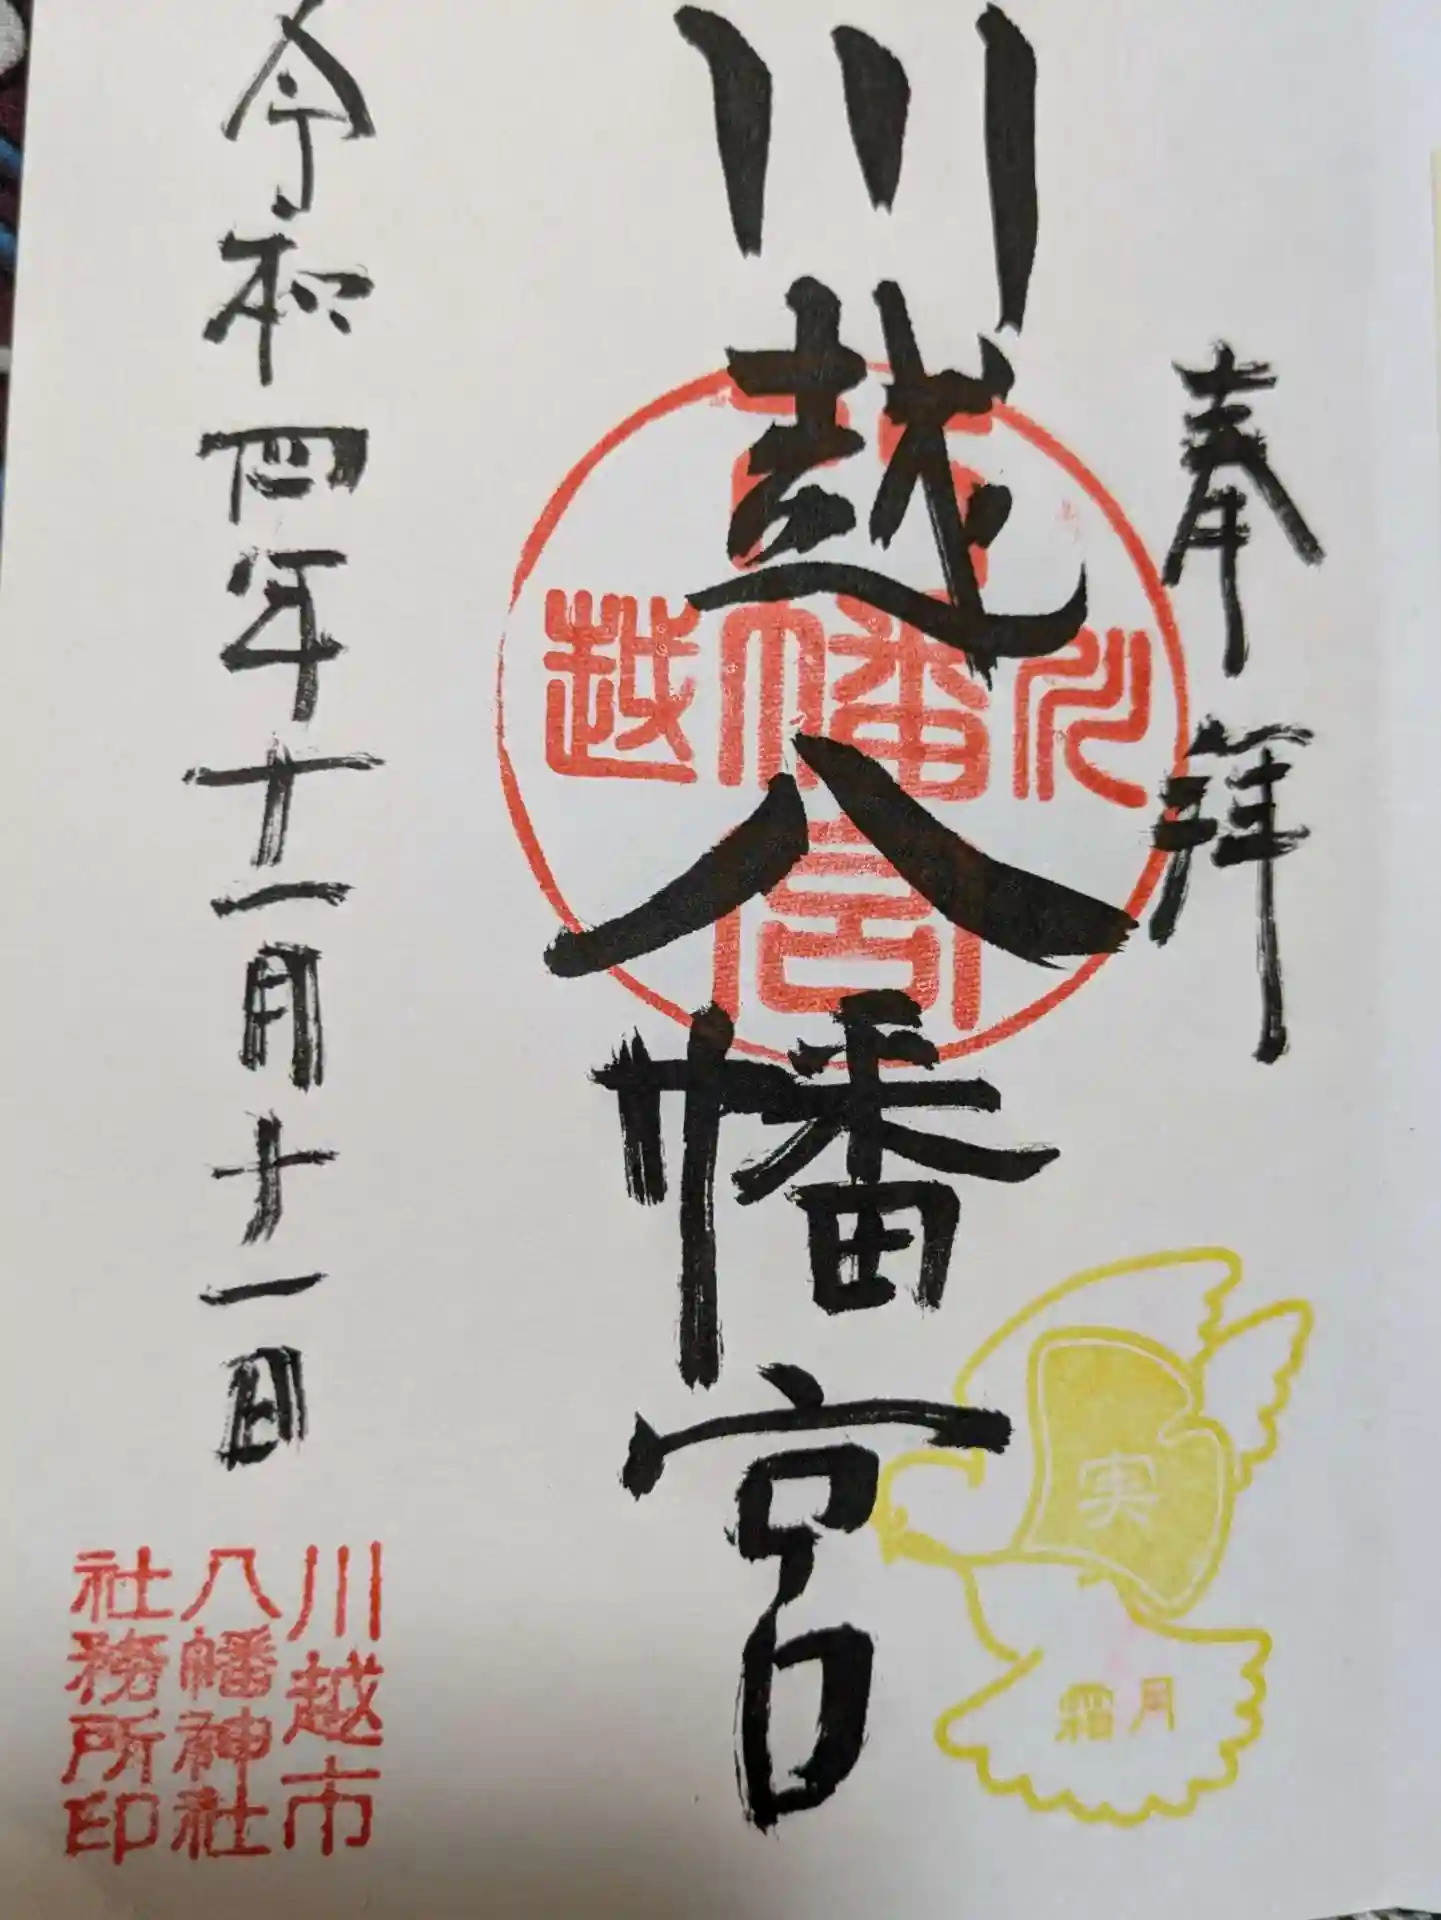 奉拝
川越八幡宮
八幡宮
川
越
実
霜月
令和四年十一月十一日
川越市
八幡神社
社務所印